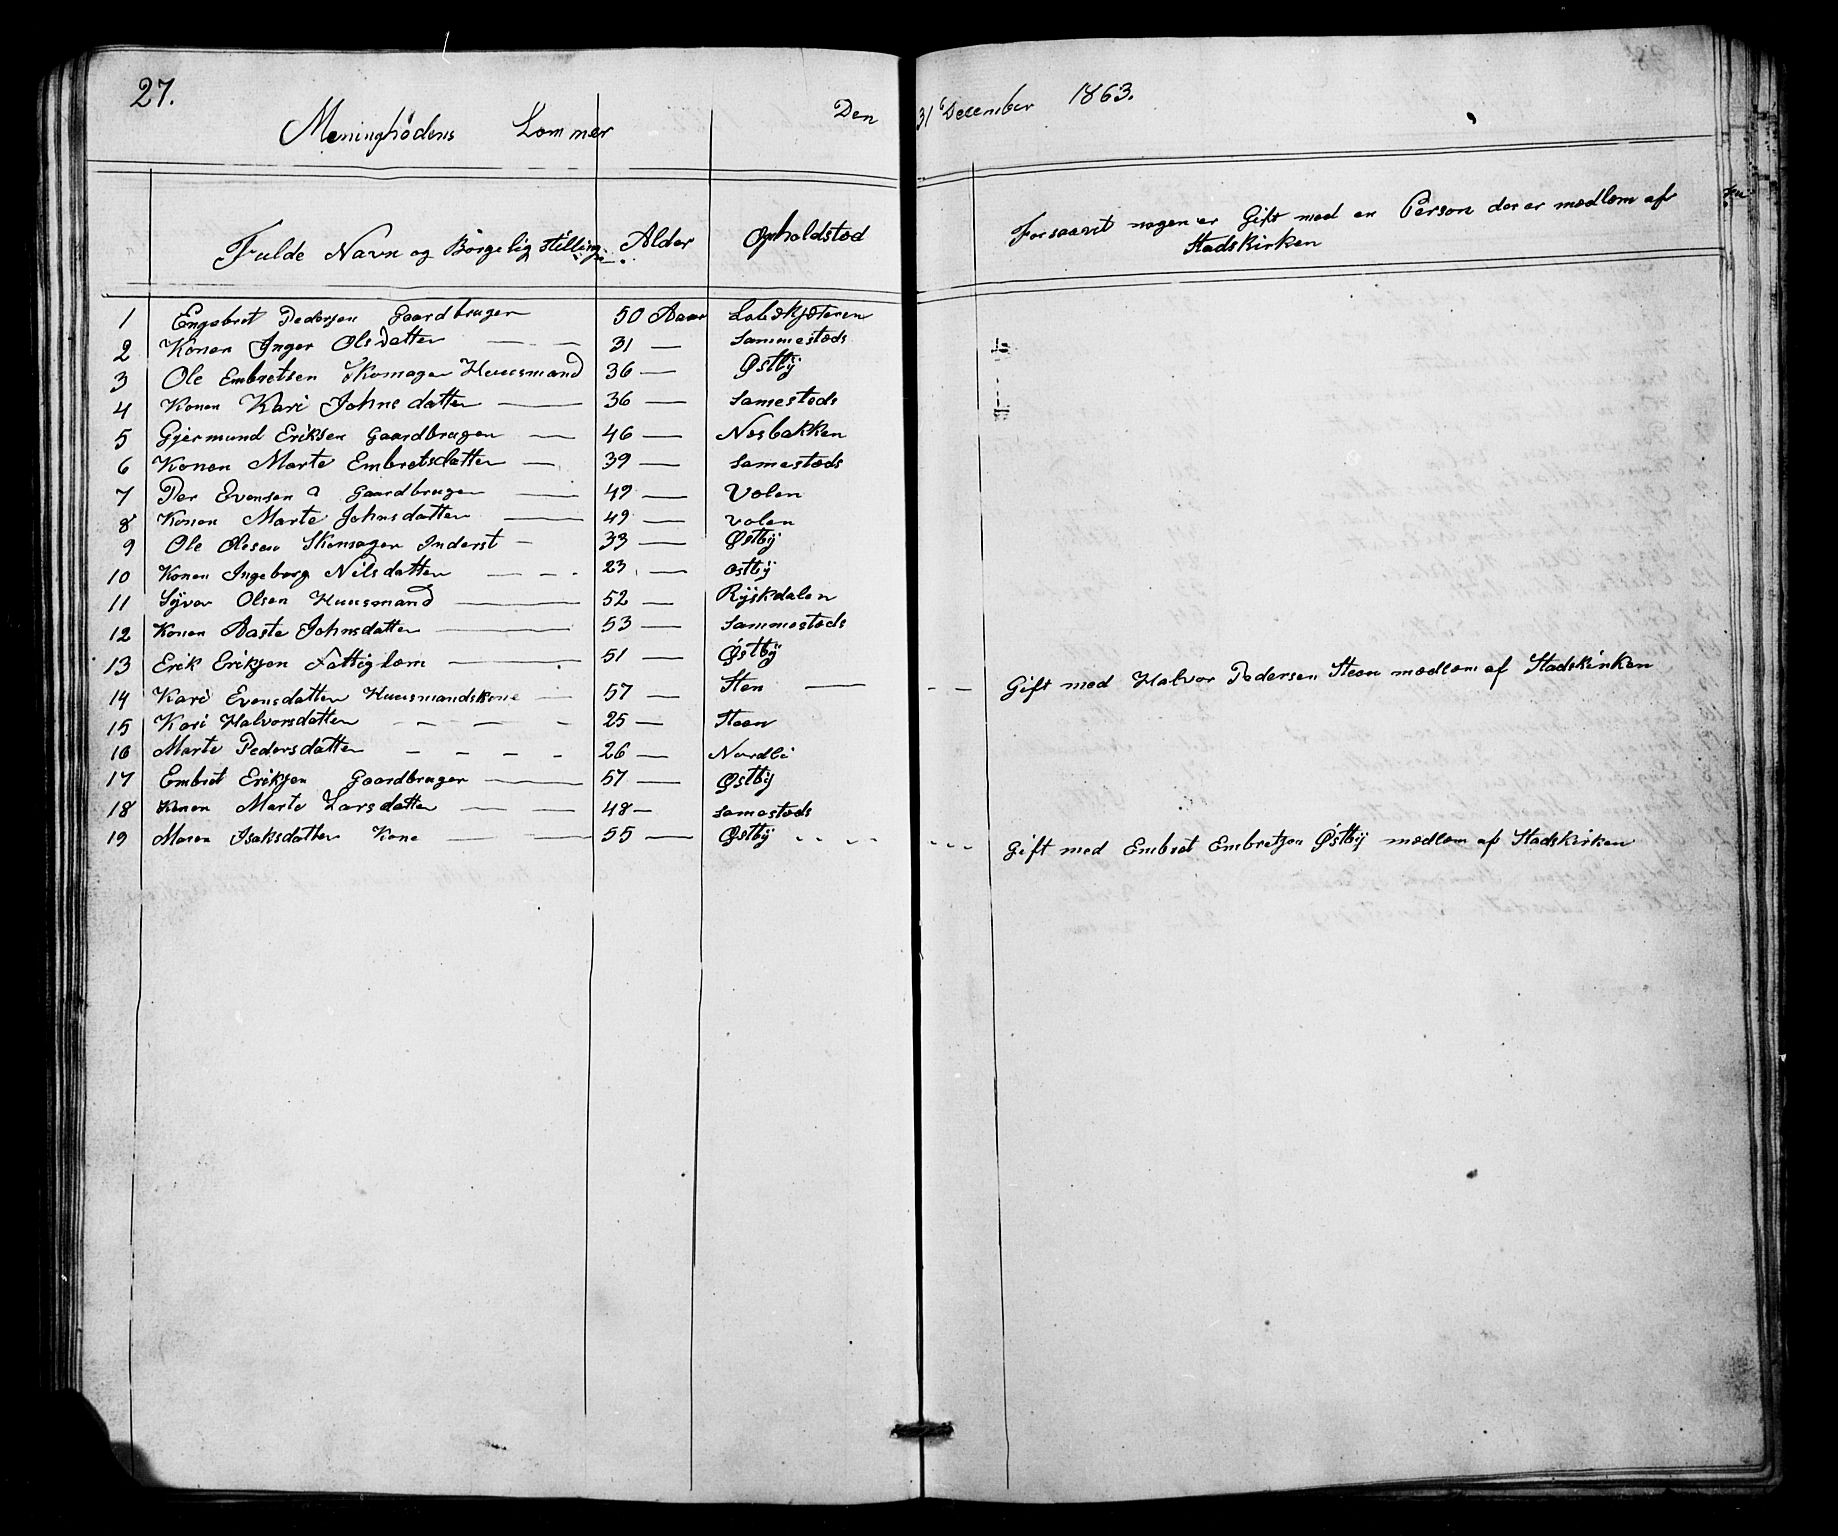 27.
Meninghødens Lemmer Den 31te December 1863.
Fulde Navn og Börgelig stilling. Alder Opholdsted Forsaavit nogen er Gift med en Person der er medlem af
Stadskirken
1 Engebret Pedersen Gaardbruger 50 Aaar
2 Konen Inger Olsdatter — — 31 — Sammesteds
3 Ole Embretsen Skomager Huusmand 36 — Østbÿ
4 Konen Kari Johnsdatter — 36 — Samesteds
5 Gjermund Eriksen Gaardbruger — 46 — Nesbakken
6 Konen Marte Embretsdatter — 39 — Samesteds
7 Per Evensen Gaardbruger — 49 — Volen
8 Konen Marte Johnsdatter — 49 — Volen
9 Ole Olesen Skomager Inderst - 33 — Østbÿ
10 Konen Ingeborg Nilsdatter — — 23 — østbÿ
11 Syver Olsen Huusmand — 52 — Rÿskdalen
12 Konen Aaste Johnsdatter — 53 — Sammesteds
13 Erik Eriksen Fattiglem — 51 — Østbÿ
14 Kari Evensdatter Huusmandskone — 57 — Sten — - - Gift med Halvor Pedersen Steen medlem af Stadskirken
15 Kari Halvorsdatter - - - - 25 — Steen
16 Marte Pedersdatter - - - - 26 — Nordli
17 Embret Eriksen Gaardbruger — 57 — Østbÿ
18 Konen Marte Larsdatter — — 48 — Samesteds
19 Maren Isaksdatter Kone — 55 — Østbÿ - - - - - - Gift med Embret Embretsen Østbÿ medlem af Stadskirken